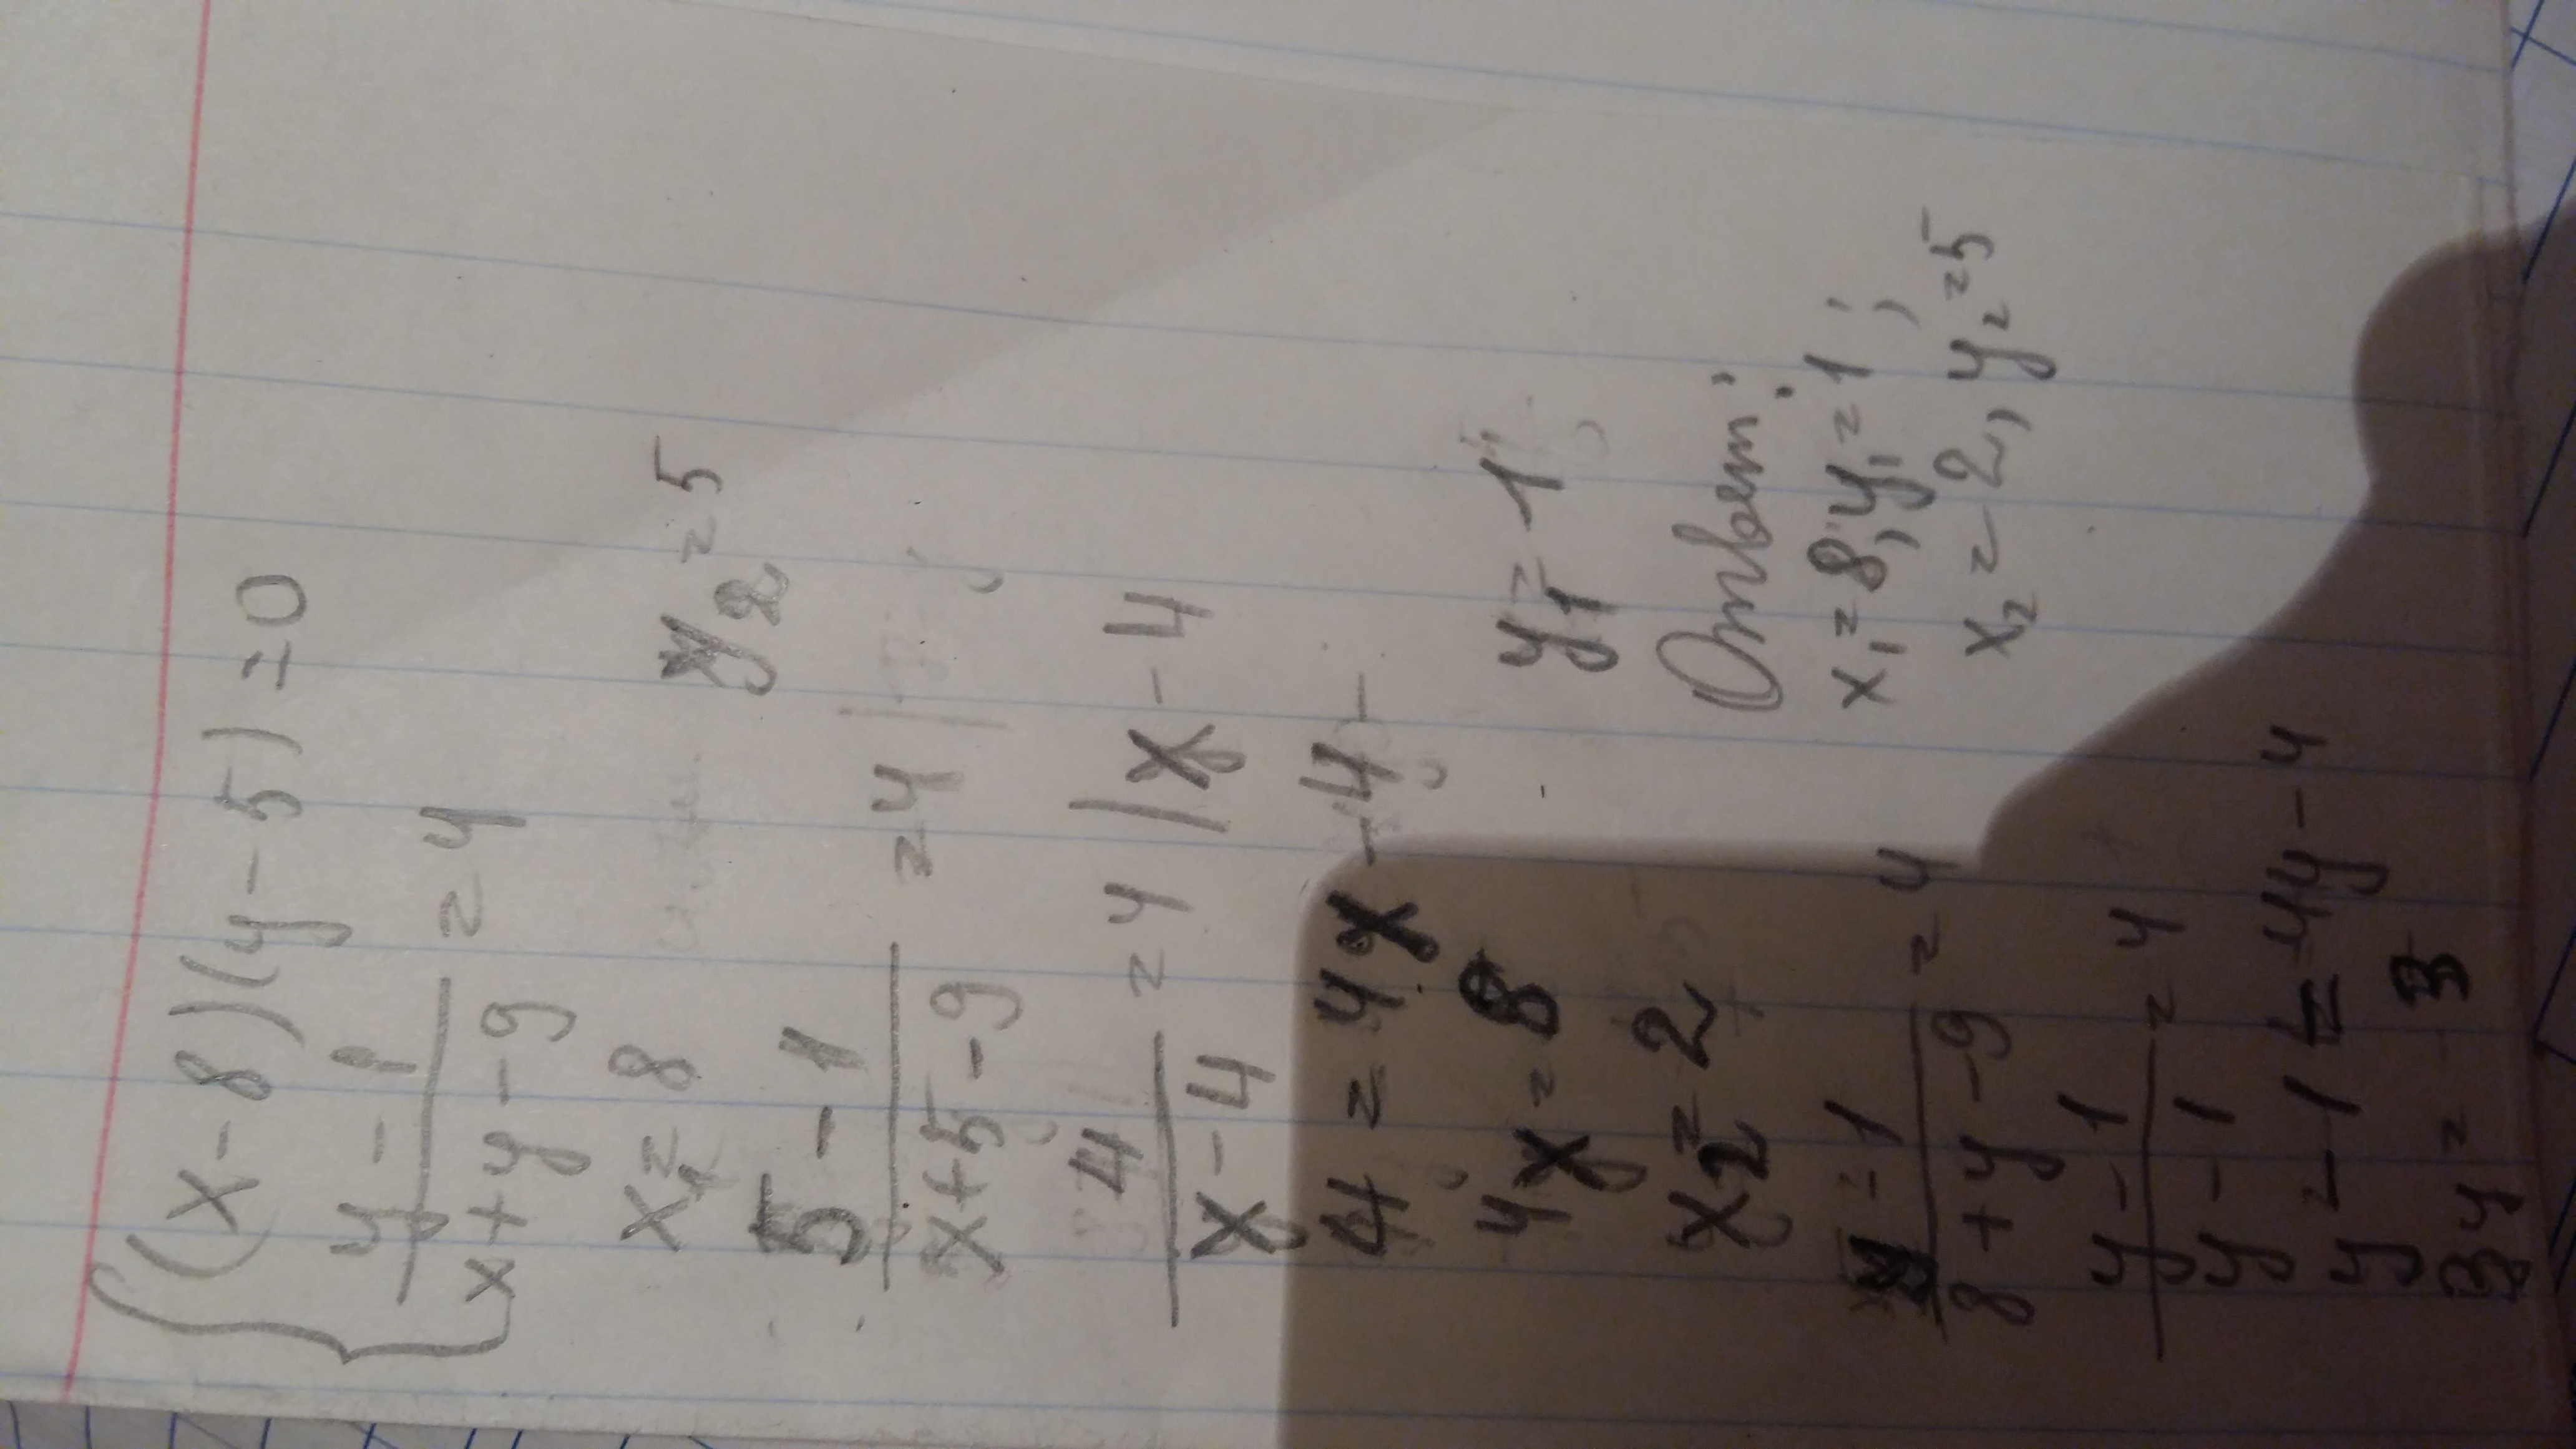 (x-8)(y-5)=0
y-1
x+y-9
=4
x1=8
y2=5
5-1
x+5-9
=4
4
x-4
=4 |x-4
4=4x-4
4x=8
x2=2
y-1
8+y-9
=4
y-1
y-1
=4
y-1=4y-4
3y=3
y1=1
Ответ:
x1=8, y1=1;
x2=2, y2=5